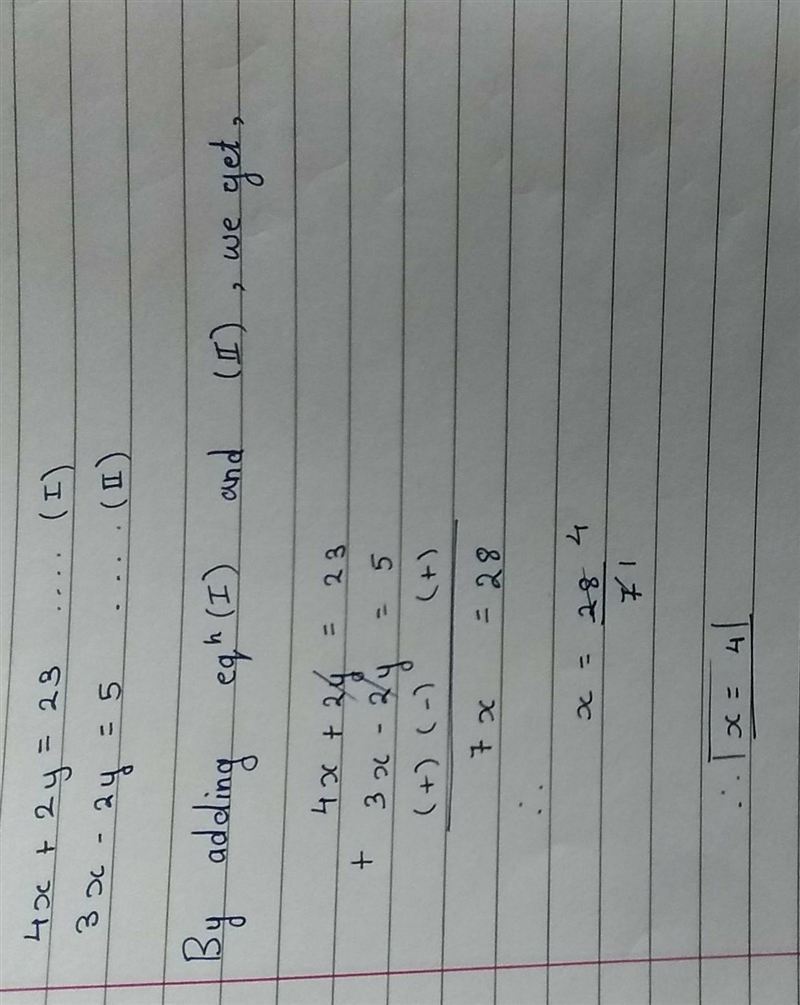 4x + 2y = 23 ..... (I)
3x - 2y = 5 ..... (II)
By adding eqⁿ (I) and (II), we get,
4x + 2y = 23
+ 3x - 2y = 5
(+) (-) (+)
7x = 28
∴ x = 28 4
7 1
∴ x = 4